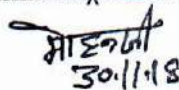 मोहनजी
30.11.18